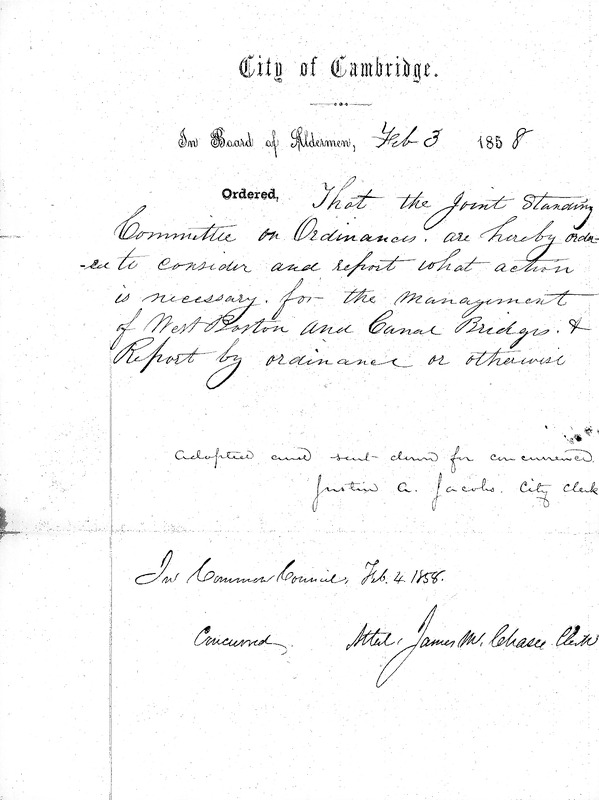 City of Cambridge.
In Board of Aldermen, Feb 3 1858
Ordered, That the Joint Standing
Committee on Ordinances. are hereby order-
-ed to consider and report what action
is necessary. for the management
of West Boston and Canal Bridges. &
Report by ordinance or otherwise
Adopted and sent down for concurrence.
Justin A. Jacobs. City Clerk
In Common Council, Feb. 4. 1858.
Concurred, Attest, James M. Chase Clerk